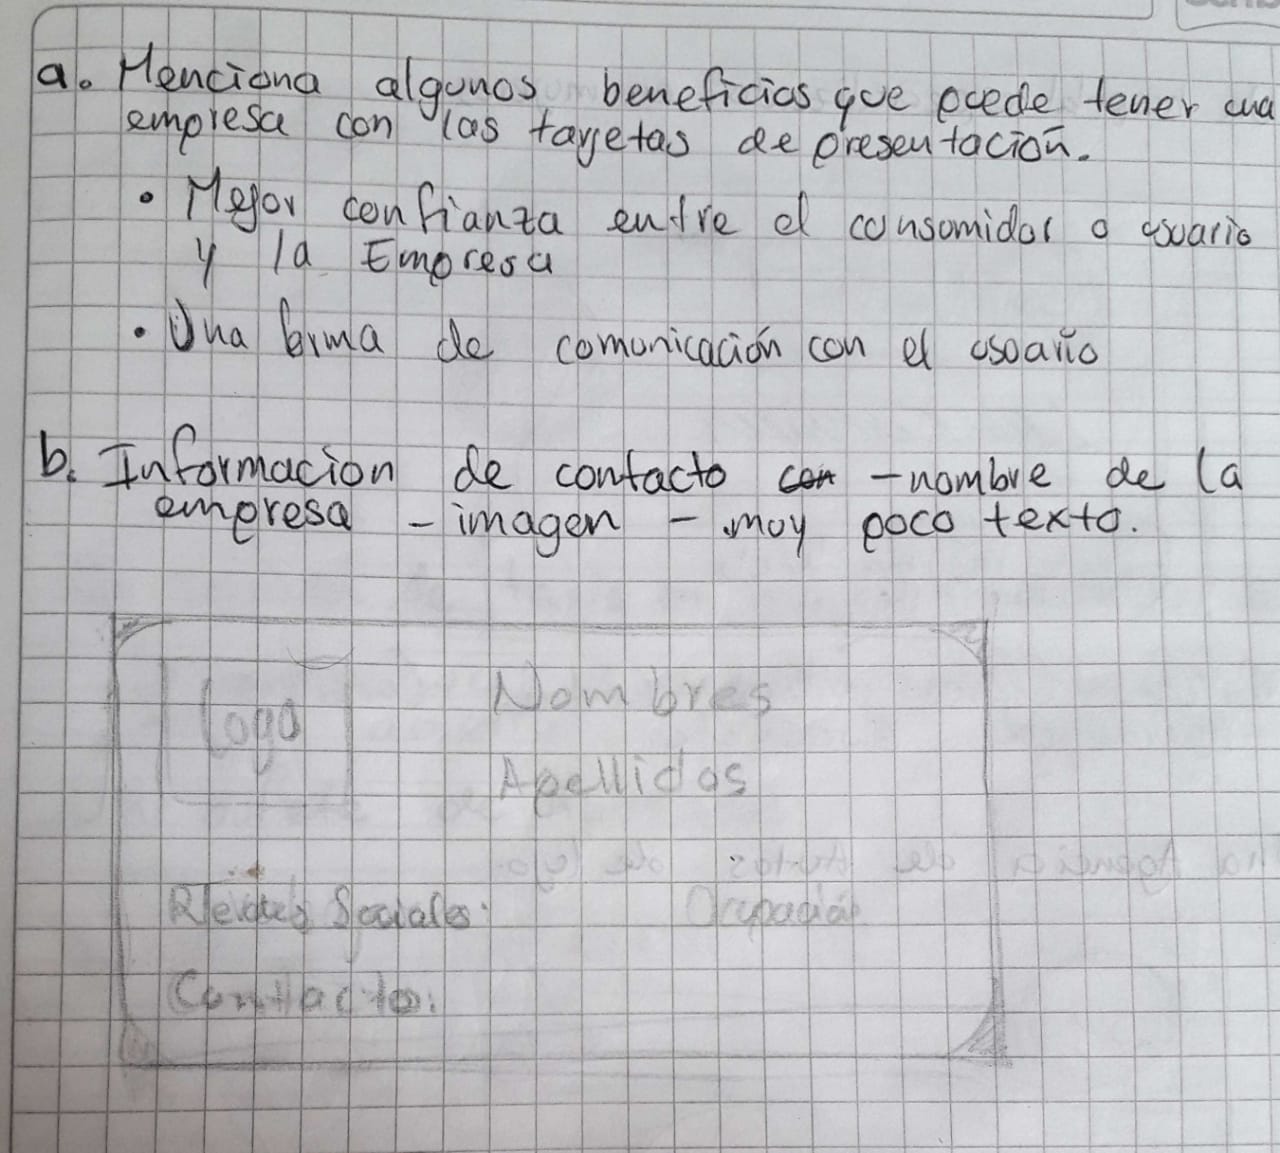 a. Menciona algunos beneficios que puede tener una
empresa con las tarjetas de presentación.
• Mejor confianza entre el consumidor o usuario
y la Empresa
• Una forma de comunicación con el usuario
b. Informacion de contacto con - nombre de la
empresa - imagen - muy poco texto.
Logo
Nombres
Apellidos
Redes Sociales:
Ocupación
Contacto: